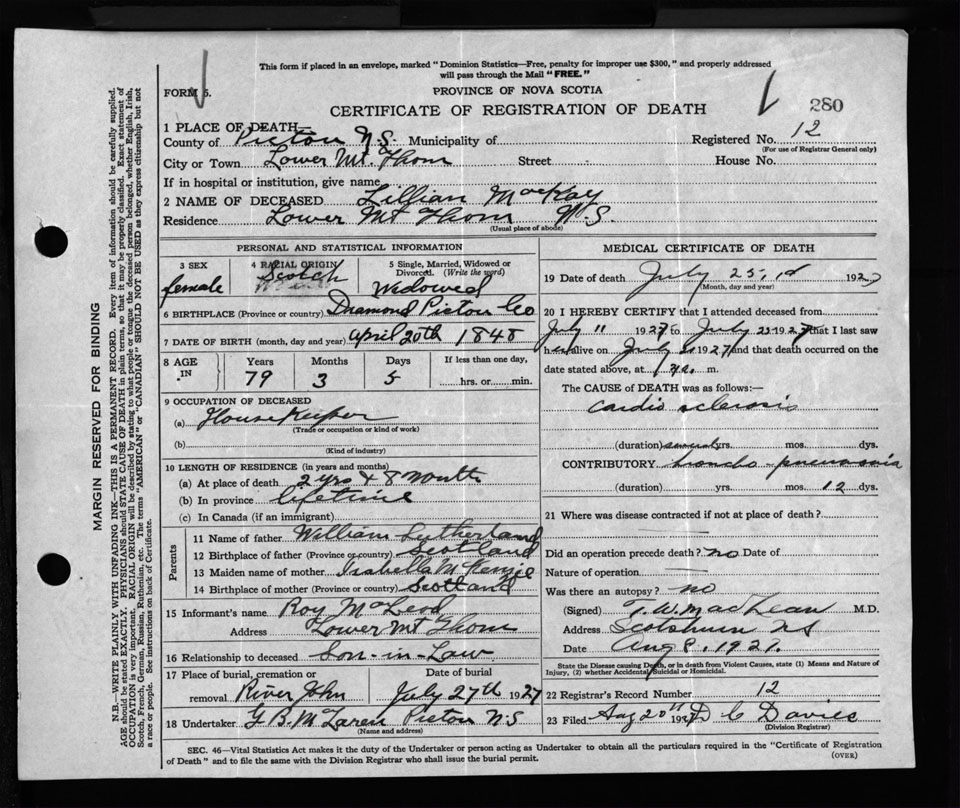 This form if placed in an envelope, marked "Dominion Statistics—Free, penalty for improper use $300," and properly addressed
will pass through the Mail "FREE."
FORM 5.
PROVINCE OF NOVA SCOTIA
280
CERTIFICATE OF REGISTRATION OF DEATH
1 PLACE OF DEATH—
County of Pictou N.S. Municipality of
Registered No. 12
(For use of Registrar General only)
City or Town Lower Mt. Thom Street House No.
If in hospital or institution, give name
2 NAME OF DECEASED Lillian MacKay
Residence Lower Mt Thom N.S.
(Usual place of abode)
PERSONAL AND STATISTICAL INFORMATION
3 SEX
female
4 RACIAL ORIGIN
Scotch
5 Single, Married, Widowed or
Divorced. (Write the word)
Widowed
6 BIRTHPLACE (Province or country) Diamond Pictou Co
7 DATE OF BIRTH (month, day and year) April 20th 1848
8 AGE IN
Years Months Days If less than one day,
79 3 5 hrs. or min.
9 OCCUPATION OF DECEASED
(a) House Keeper
(Trade or occupation or kind of work)
(b)
(Kind of industry)
10 LENGTH OF RESIDENCE (in years and months)
(a) At place of death 2 yrs & 8 Months
(b) In province lifetime
(c) In Canada (if an immigrant)
Parents
11 Name of father William Sutherland
12 Birthplace of father (Province or country) Scotland
13 Maiden name of mother Isabella McKenzie
14 Birthplace of mother (Province or country) Scotland
15 Informant's name Roy McLeod
Address Lower Mt Thom
16 Relationship to deceased Son-in-Law
17 Place of burial, cremation or Date of burial
removal River John July 27th 1927
18 Undertaker G B McLaren Pictou N.S
(Name and address)
MEDICAL CERTIFICATE OF DEATH
19 Date of death July 25, 1927
(Month, day and year)
20 I HEREBY CERTIFY that I attended deceased from
July 11 1927 to July 25 1927 that I last saw
her alive on July 1927 and that death occurred on the
date stated above, at m.
The CAUSE of DEATH was as follows:—
Cardio sclerosis
(duration) several yrs. mos. dys.
CONTRIBUTORY broncho-pneumonia
(duration) yrs. mos. 12 dys.
21 Where was disease contracted if not at place of death?
Did an operation precede death? no Date of
Nature of operation
Was there an autopsy? no
(Signed) T. W. MacLean M.D.
Address Scotsburn NS
Date Aug 8, 1927.
State the Disease causing Death, or in death from Violent Causes, state (1) Means and Nature of
Injury, (2) whether Accidental, Suicidal or Homicidal.
22 Registrar's Record Number 12
23 Filed Aug 20th 1927 D C Davies
(Division Registrar)
SEC. 46—Vital Statistics Act makes it the duty of the Undertaker or person acting as Undertaker to obtain all the particulars required in the "Certificate of Registration
of Death" and to file the same with the Division Registrar who shall issue the burial permit.
(OVER)
MARGIN RESERVED FOR BINDING
N.B.—WRITE PLAINLY WITH UNFADING INK—THIS IS A PERMANENT RECORD. Every item of information should be carefully supplied.
AGE should be stated EXACTLY. PHYSICIANS should STATE CAUSE OF DEATH in plain terms, so that it may be properly classified. Exact statement of
OCCUPATION is very important. RACIAL ORIGIN will be described by stating to what people or tongue the deceased person belonged, whether English, Irish,
Scotch, French, German, Russian, Ruthenian, etc. The terms "AMERICAN" or "CANADIAN" SHOULD NOT BE USED as they express citizenship but not
a race or people. See instructions on back of Certificate.